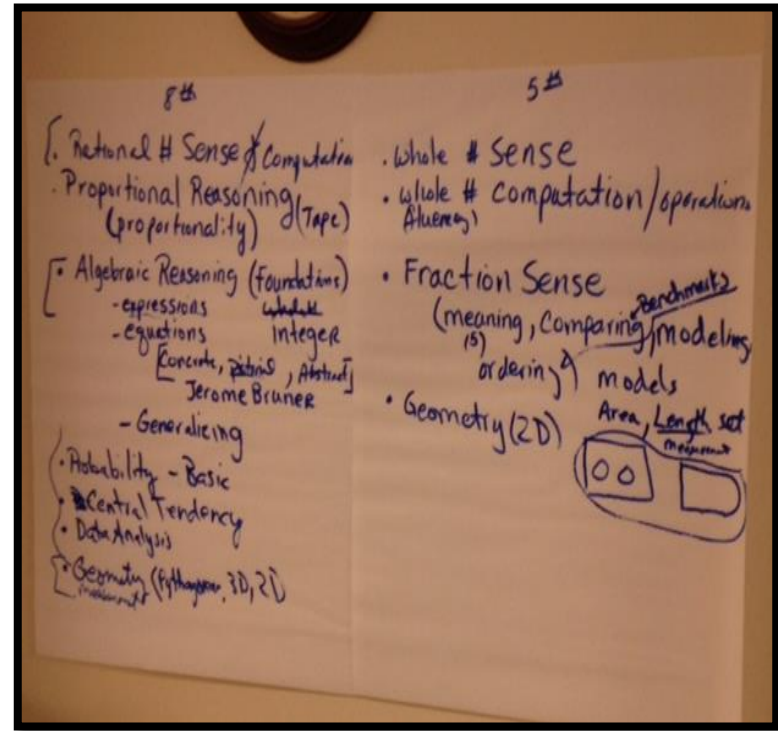 8th
. Rational # Sense & Computation
. Proportional Reasoning
(proportionality) (Tape)
• Algebraic Reasoning (foundations)
- expressions
- equations Integer
[Concrete, pictorial, Abstract]
Jerome Bruner
- Generalizing
• Probability - Basic
• Central Tendency
• Data Analysis
• Geometry (Pythagorean, 3D, 2D
measurement
5th
. Whole # Sense
. Whole # Computation/operations
fluency
• Fraction Sense
Benchmarks
(meaning, Comparing, modeling,
(5)
ordering) models
Area, Length, set
measurement
• Geometry (2D)